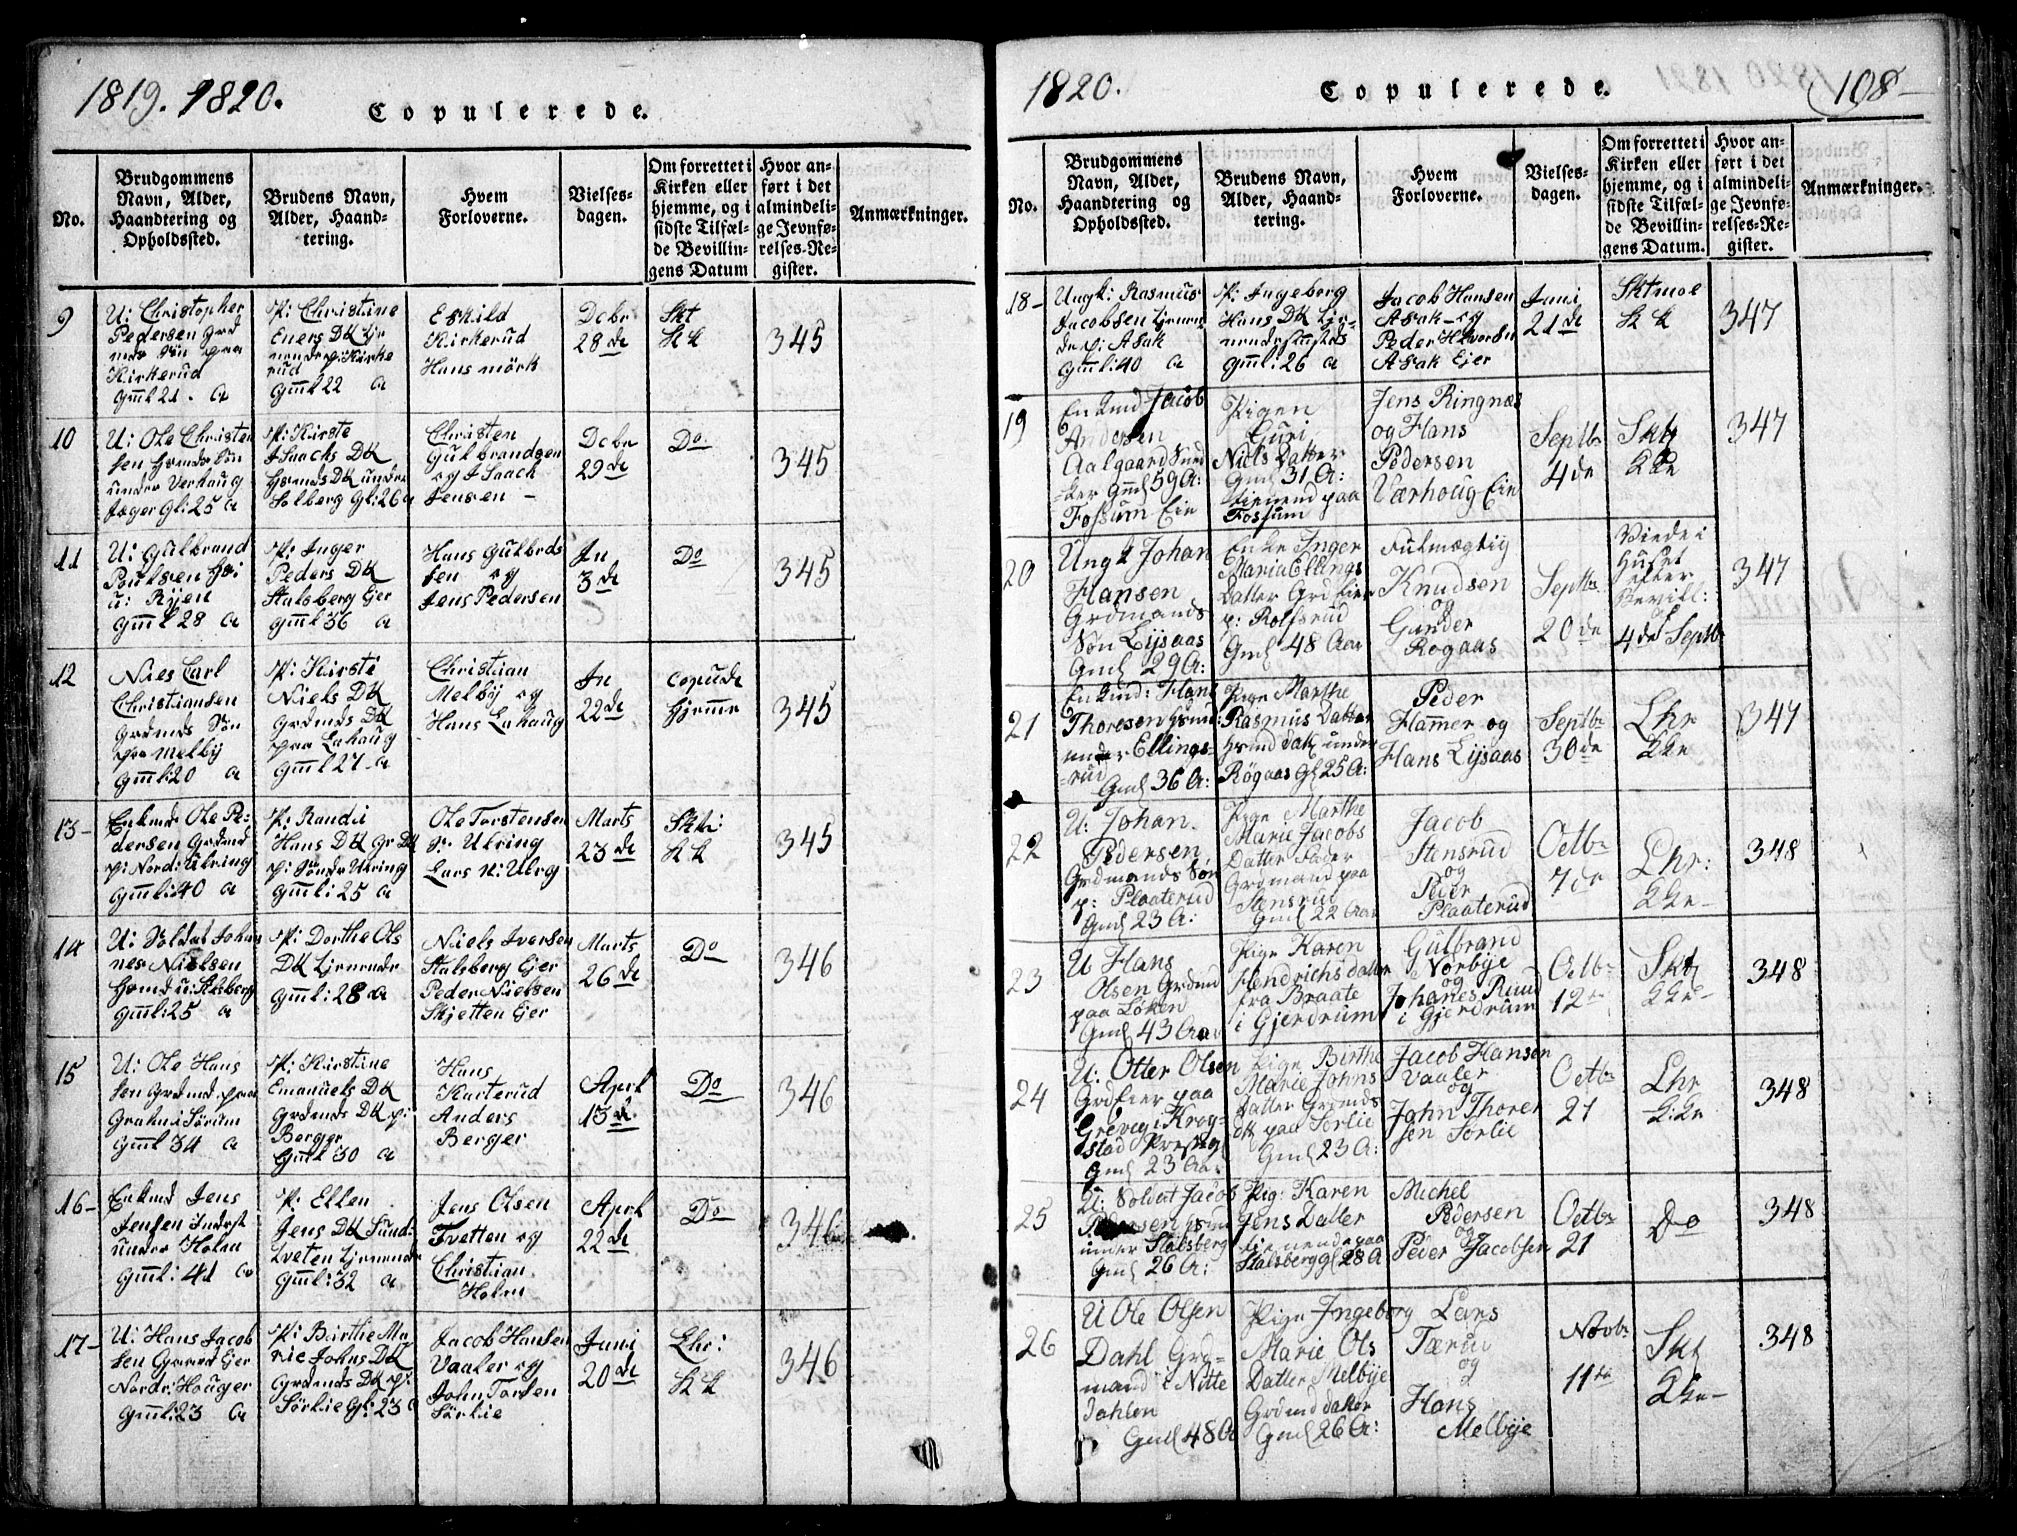 1819. 1820.
Copulerede.
No.
Brudgommens
Navn, Alder,
Haandtering og
Opholdssted.
Brudens Navn,
Alder, Haand-
tering.
Hvem
Forloverne.
Vielses-
dagen.
Om forrettet i
Kirken eller
hjemme, og i
sidste Tilfæl-
de Bevillin-
gens Datum
Hvor an-
ført i det
almindeli-
ge Jevnfø-
relses-Re-
gister.
Anmærkninger.
9
U: Christopher
Pedersen
Søn paa
Kirkerud
gml 21. a
P: Christine
Eners DK
Kirke
rud
gml 22 a
Eskild
Kirkerud
Hans mörk
Dcbr
28 de
Skt
KK
345
10
U: Ole Christen
sen Søn
under Verhaug
Jæger Gl: 25 a
P: Kirste
Isaachs DK
DK under
Solberg Gl: 26 a
Christen
Gulbrandsen
og Isaack
Jensen -
Dcbr
29 de
Do
345
11
U: Gulbrand
u: Ryen
gml 28 a
P: Inger
Peders DK
Stalsberg Ejer
gml 36 a
Hans Gulbrds
sen og
Jens Pedersen
Jn
3 de
Do
345
12
Nies Carl
Christiansen
Grdmds Søn
paa Melby
gml: 20 a
P: Kirste
Niels DK
Grdmds DK
paa Lahaug
gml 27 a
Christian
Melby og
Hans Lahaug
Jn
22 de
copude
hjeme
345
13-
Enkmd Ole Pe-
dersen Grdmd
p: Nord: Ulvring
gml: 40 a
P: Randi
Hans DK Gr DK
p: Sönde Ulvring
gml: 25 a
Ole Torstensen
Ulvring
Lars N: Ulvrg
Marts
23 de
Skt:
KK
345
14
U: Soldat Johan
nes Nielsen
gml: 25 a
P: Dorthe Ols
DK tjenende
gml: 28 a
Niels Iversen
Stalsberg Ejer
Peder Nielsen
Skjetten Ejer
Marts
26 de
Do
346
15
U: Ole Hans
sen Grdmd paa
i Sörum
gml 34 a
P: Kirstine
Emanuels DK
Grdmds DK p:
Berger
Gml 30 a
Hans
Karterud
Anders
Berger
Aprl
13 de
Do
346
16-
Enkmd Jens
Jensen Inderst
under Holm
gml: 41 a
P: Ellen
Jens DK Sund-
tveten tjenende
gml: 32 a
Jens Olsen
Tvetten og
Christian
Holm
Aprl
22 de
Do
346
17-
U: Hans Jacob
sen Gaard Ejer
Nordr: Houger
gml: 23 a
P: Birthe Ma-
rie Johns DK
Grdmds DK p:
Sörlie Gl: 23 a
Jacob Hansen
Vaaler og
John Torsen
Sörlie
Juni
20 de
Lhr:
KK
346
1820.
Copulerede.
108
No.
Brudgommens
Navn, Alder,
Haandtering og
Opholdssted.
Brudens Navn,
Alder, Haand-
tering.
Hvem
Forloverne.
Vielses-
dagen.
Om forrettet i
Kirken eller
hjemme, og i
sidste Tilfæl-
de Bevillin-
gens Datum.
Hvor an-
ført i det
almindeli-
ge Jevnfø-
relses-Re-
gister.
Anmærkninger.
18-
Ungk: Rasmus
Jacobsen tjenen
de p: Asak
gml: 40 a
P: Ingeborg
Hans DK tje-
nende
gml: 26 a
Jacob Hansen
Asak og
Peder Halvorsen
Asak Ejer
Juni
21 de
Sktmoe
KK
347
19
Enkmd Jacob
Andersen
Aalgaard Sned
-ker Gml 59 A:
Fossum Eie
Pigen
Guri
Niels Datter
Gml 31 A:
tienend paa
Fossum
Jens Ringnæs
og Hans
Pedersen
Værhoug Eie
Septbr
4 de
Skt
KKe
347
20
Ungk Johan
Hansen
Grdmands
Søn Lysaas
Gml 29 A:
Enke Inger
Maria Ellings
Datter Grd Eier
p: Rolfsrud
Gml 48 Aar
Fulmægtig
Knudsen
og
Gunder
Rogaas
Septbr
20 de
Viede i
Huset
efter
Bevill:
af
4de Septb
347
21
Enkmd: Hans
Thoresen
under Ellings-
rud
Gml 36 A:
Pige Marthe
Rasmus Datter
Hsmd datt under
Rögaas Gl 25 A:
Peder
Hammer og
Hans Lysaas
Septbr
30 de
Lhr
KKe
347
22
U: Johan
Pedersen
Grdmands Søn
p: Plaaterud
Gml 23 A:
Pige Marthe
Marie Jacobs
Datter Fader
Grdmand paa
Stensrud
Gml 22 Aar
Jacob
Stensrud
og
Peder
Plaaterud
Octbr
7 de
Lhr:
KKe-
348
23
U Hans
Olsen Grdmd
paa Löken
Gml 43 Aar
Pige Karen
Hendrichs datter
fra Braate
i Gjerdrum
Gulbrand
Norbye
og
Johanes Ruud
i Gjerdrum
Octbr
12te
Skt
KKe-
348
24
U: Otter Olsen
Grd Eier paa
Grevegi Krog-
stad Præstegl
Gml 23 Aar
Pige Birthe
Marie Johns
datter Grdmds
dtt paa Sorlie
Gml 23 A:
Jacob Hansen
Vaaler
og
John Thorer
sen Sorlie
Octbr
21
Lhr
K:Ke
348
25
U: Soldat Jacob
under Stalsberg
Gml 26 A:
Pig: Karen
Jens Datter
tienende paa
Stalsberg gl 28 A
Michel
Pedersen
og
Peder Jacobsen
Octbr
21
Do
348
26
U Ole Olsen
Dahl Grd-
mand i Nitte
dahlen
Gml 48 A
Pige Ingeborg
Marie Ols
Datter Melbye
Grdmd datter
Gml 26 A:
Lars
Tærud
og
Hans
Melbye
Novbr
11 te
Skt
KKe-
348